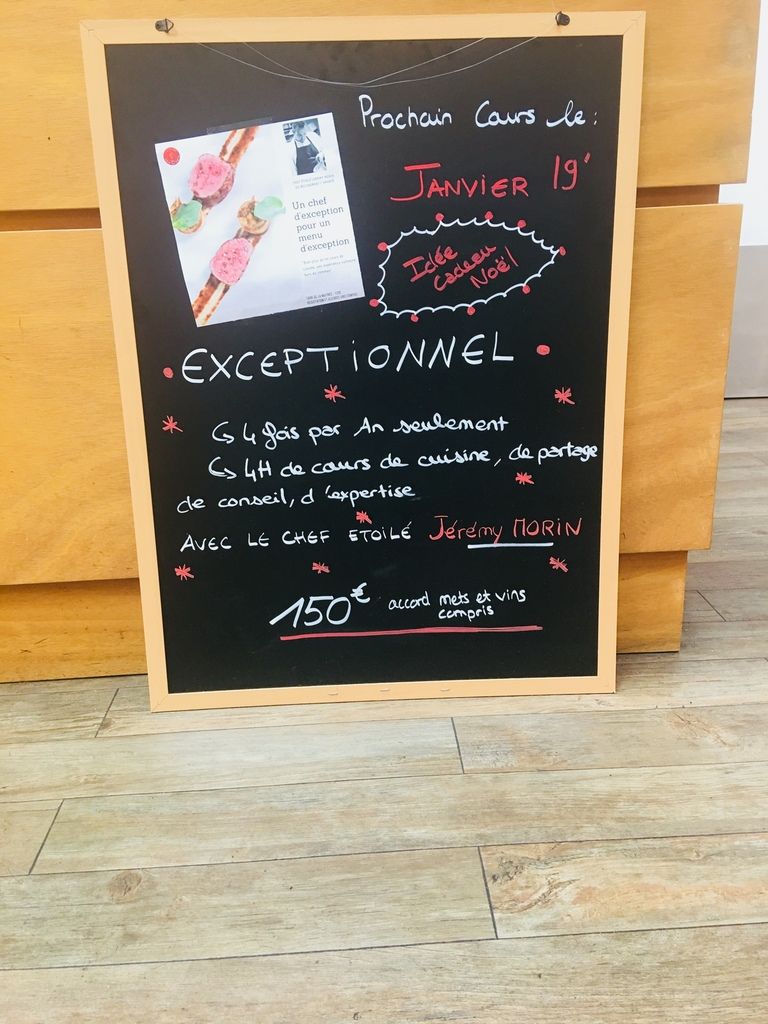 Prochain Cours le :
JANVIER 19'
Idée
Cadeau
Noël
Un chef
d'exception
pour un
menu
d'exception
EXCEPTIONNEL
↳ 4 fois par An seulement
↳ 4H de cours de cuisine, de partage
de conseil, d'expertise
AVEC LE CHEF ETOILÉ Jérémy MORIN
150€ accord mets et vins
compris